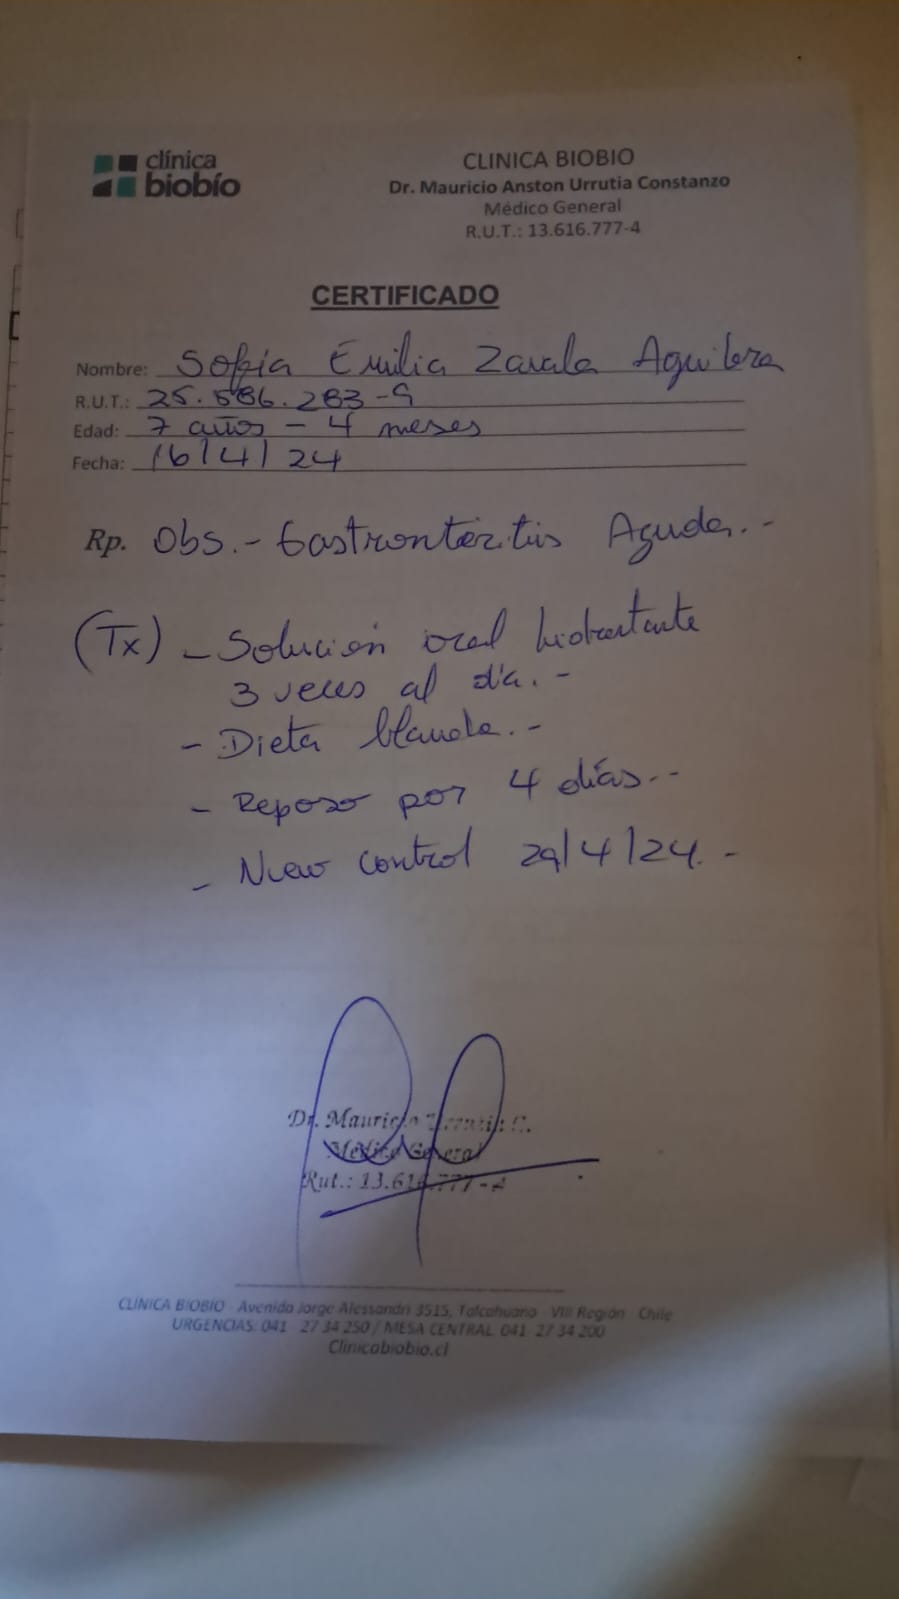 clínica
biobío
CLINICA BIOBIO
Dr. Mauricio Anston Urrutia Constanzo
Médico General
R.U.T.: 13.616.777-4
CERTIFICADO
Nombre: Sofía Emilia Zavala Aguilera
R.U.T.: 25.586.283-9
Edad: 7 años - 4 meses
Fecha: 16/4/24
Rp. Obs.- Gastronteritis Aguda.-
(Tx) - Solución oral hidratante
3 veces al día.-
- Dieta blanda.-
- Reposo por 4 días.-
- Nuevo control 29/4/24.-
Dr. Mauricio Urrutia C.
Médico General
Rut.: 13.616.777-4
CLINICA BIOBIO - Avenida Jorge Alessandri 3515, Talcahuano - VIII Región - Chile
URGENCIAS: 041 - 27 34 250 / MESA CENTRAL: 041- 27 34 200
Clinicabiobio.cl